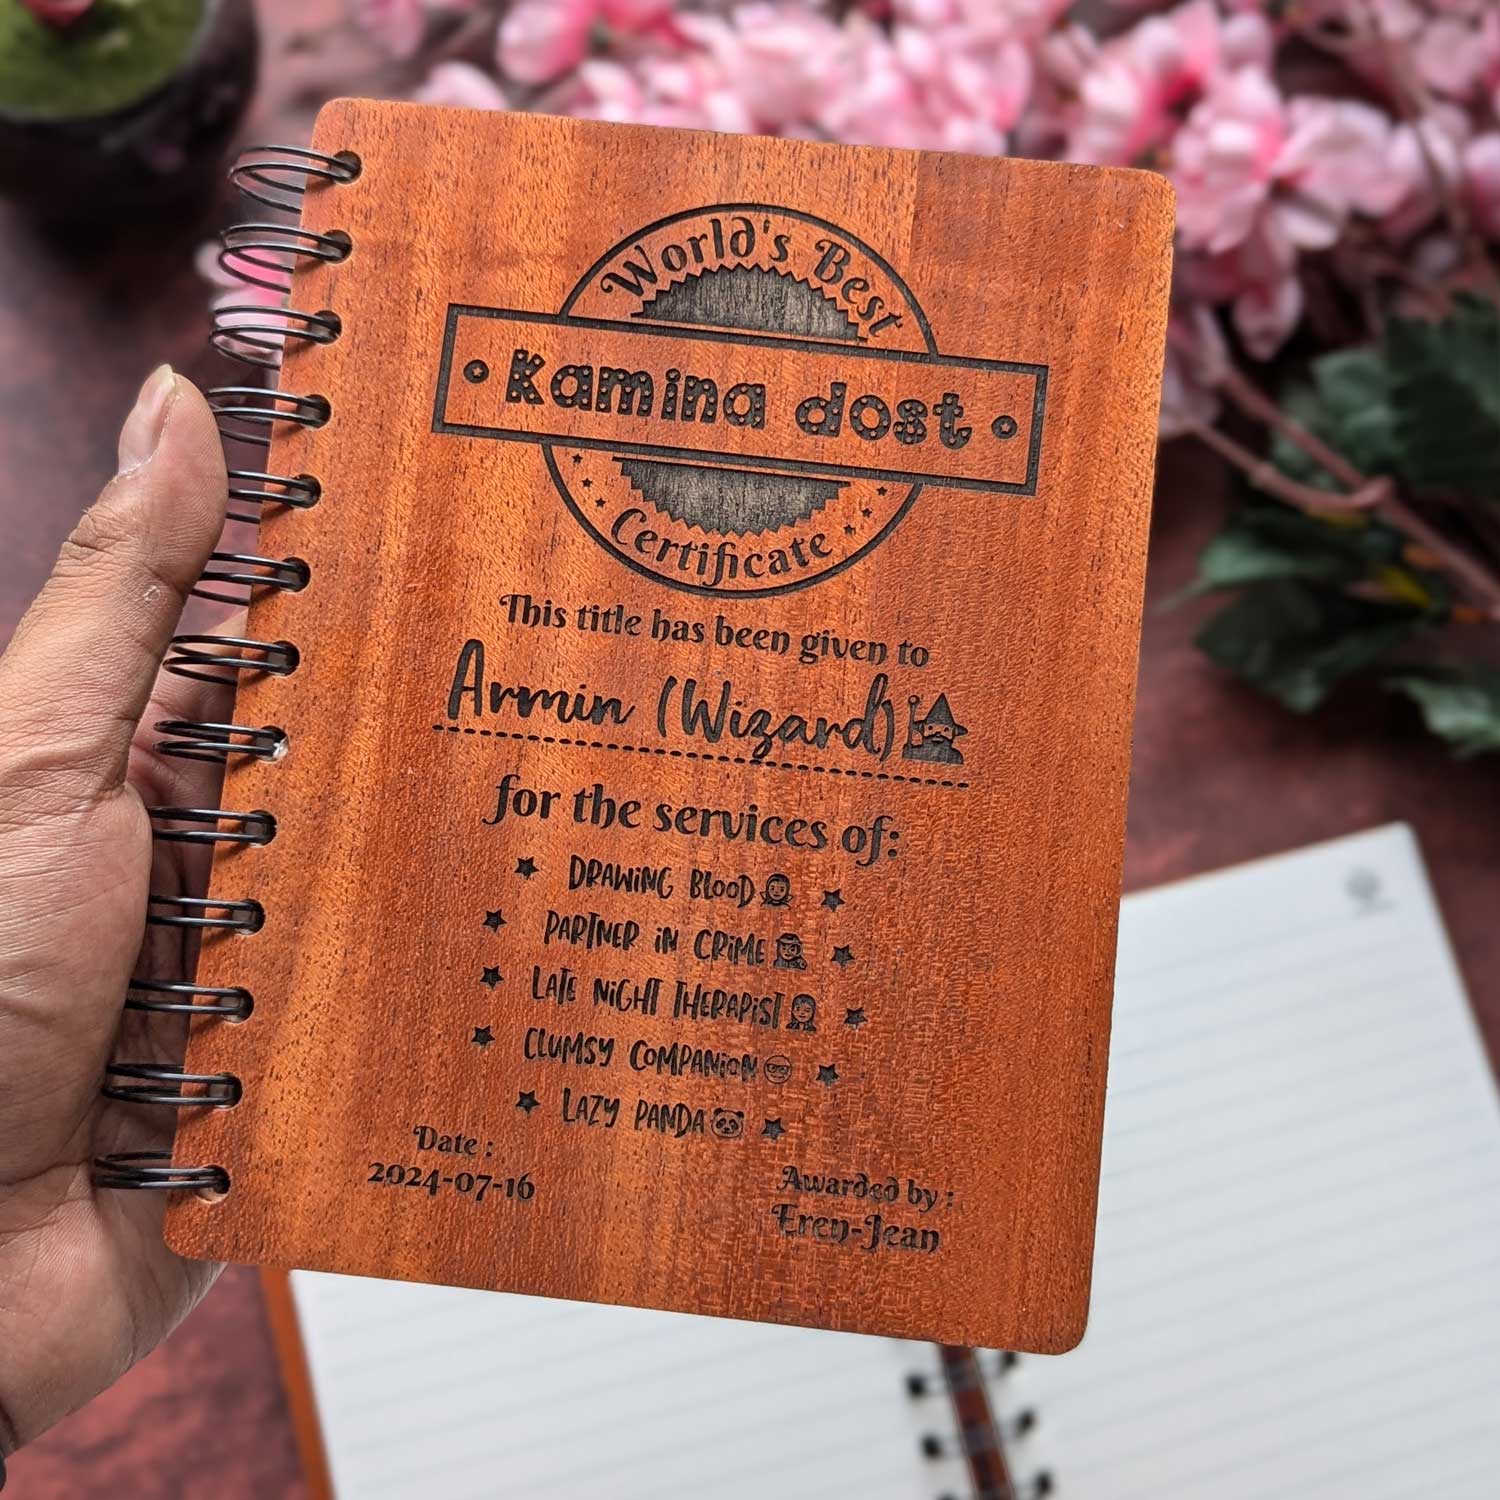 World's Best
Kamina dost
Certificate
This title has been given to
Armin (Wizard)
for the services of:
DRAWING BLOOD
PARTNER IN CRIME
LATE NIGHT THERAPIST
CLUMSY COMPANION
LAZY PANDA
Date :
2024-07-16
Awarded by :
Eren-Jean